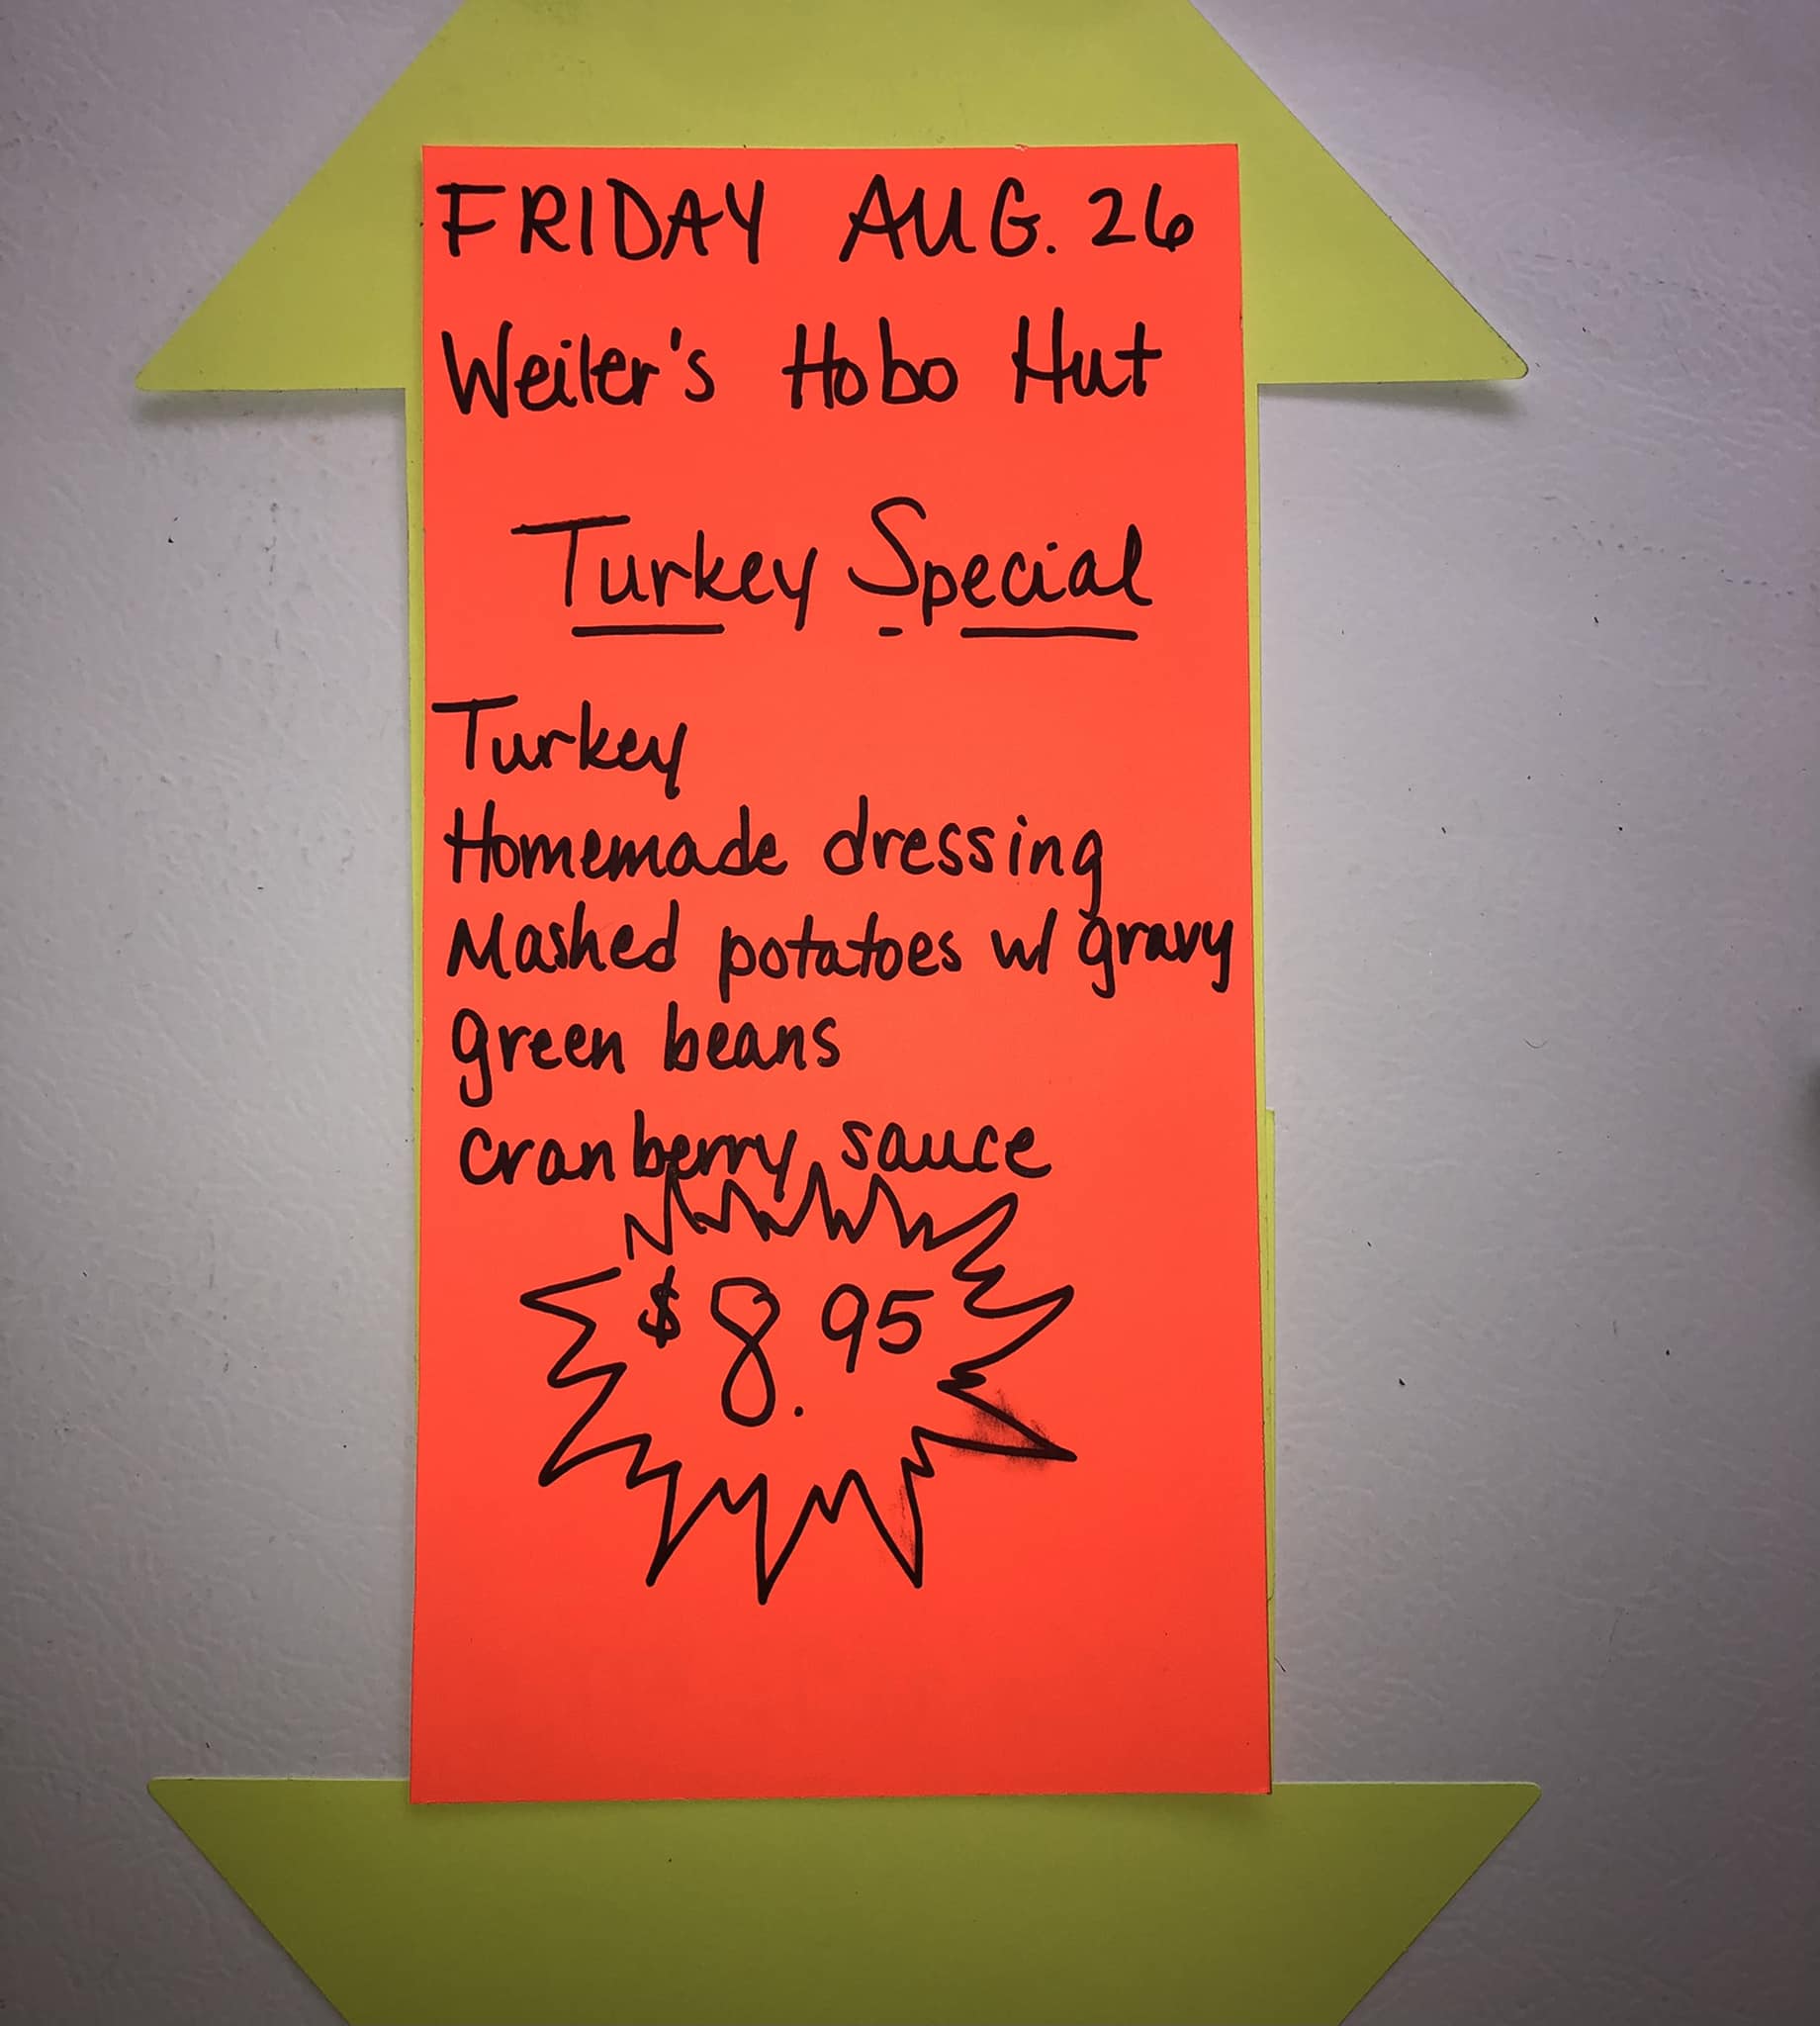 FRIDAY AUG. 26
Weiler's Hobo Hut
Turkey Special
Turkey
Homemade dressing
Mashed potatoes w/ gravy
green beans
cranberry sauce
$8.95